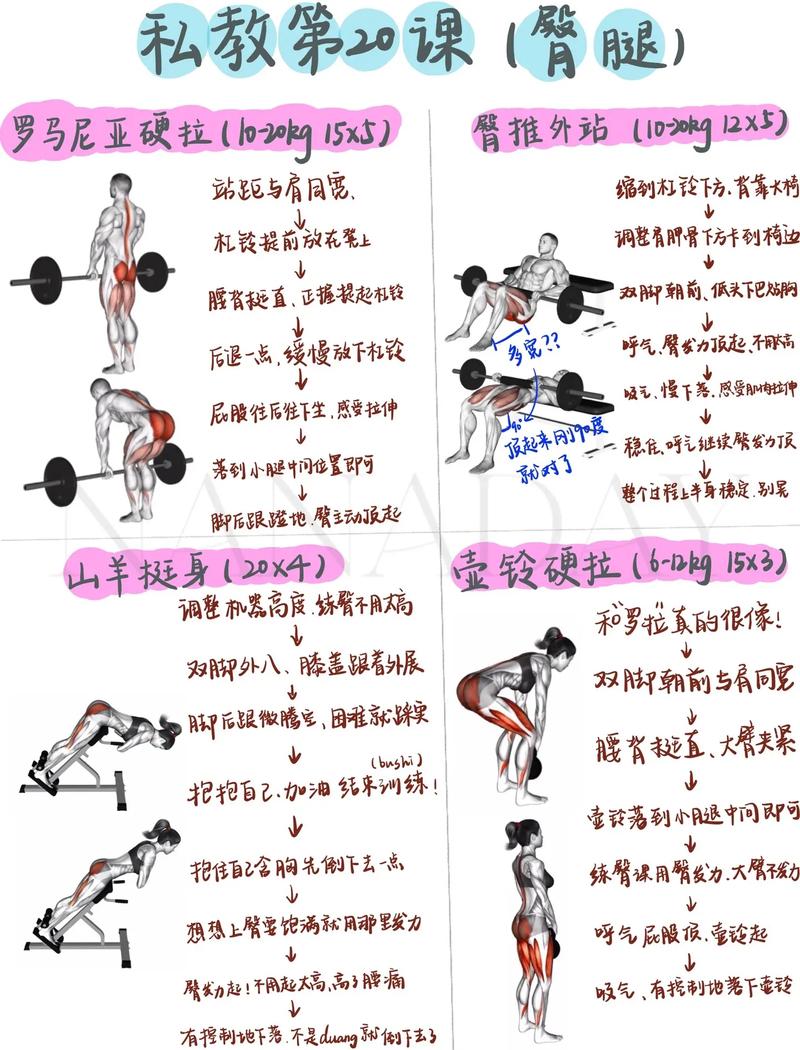 私教第20课（臀腿）
罗马尼亚硬拉（10-20kg 15x5）
站距与肩同宽、
↓
杠铃提前放在凳上
↓
腰背挺直、正握提起杠铃
↓
后退一点,缓慢放下杠铃
↓
屁股往后往下坐,感受拉伸
↓
落到小腿中间位置即可
↓
脚后跟蹬地、臀主动顶起
臀推外站（10-20kg 12x5）
缩到杠铃下方、背靠大椅
↓
调整肩胛骨下方卡到椅边
↓
双脚朝前、低头下巴贴胸
↓
呼气、臀发力顶起、不用太高
↓
吸气、慢下落、感受肌肉拉伸
↓
稳住、呼气继续臀发力顶
↓
整个过程上半身稳定、别晃
多宽??
90°
顶起来刚90度
就对了
山羊挺身（20x4）
调整机器高度、练臀不用太高
↓
双脚外八、膝盖跟着外展
↓
脚后跟微腾空、困难就踩实
↓
(bushi)
抱抱自己、加油 结束训练!
↓
抱住自己含胸先倒下去一点
↓
想想上臀要饱满就用那里发力
↓
臀发力起!不用起太高,高了腰痛
↓
有控制地下落、不是duang就倒下去了
壶铃硬拉（6-12kg 15x3）
和"罗拉"真的很像!
↓
双脚朝前与肩同宽
↓
腰背挺直、大臂夹紧
↓
壶铃落到小腿中间即可
↓
练臀课用臀发力、大臂不发力
↓
呼气 屁股顶、壶铃起
↓
吸气、有控制地落下壶铃
NANADAY